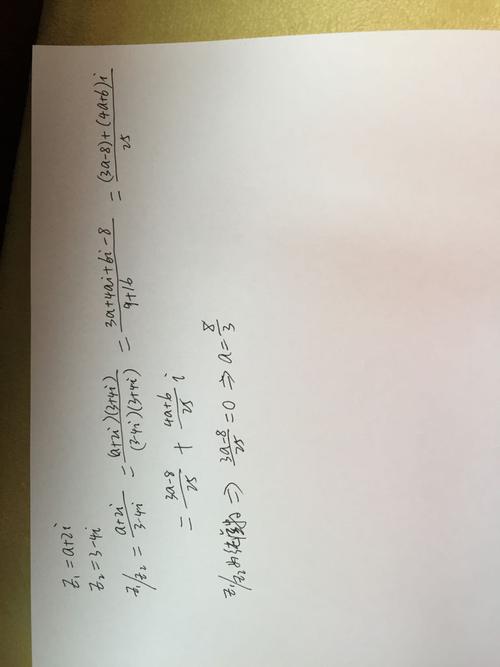 z₁ = a+2i
z₂ = 3-4i
z₁/z₂ = (a+2i)/(3-4i) = (a+2i)(3+4i)/(3-4i)(3+4i) = (3a+4ai+6i-8)/(9+16) = ((3a-8)+(4a+6)i)/25
= (3a-8)/25 + (4a+6)/25 i
z₁/z₂为纯虚数 ⇒ (3a-8)/25 = 0 ⇒ a = 8/3